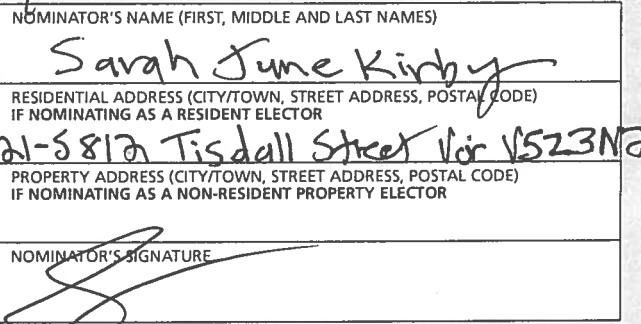 NOMINATOR'S NAME (FIRST, MIDDLE AND LAST NAMES)
Sarah June Kirby
RESIDENTIAL ADDRESS (CITY/TOWN, STREET ADDRESS, POSTAL CODE)
IF NOMINATING AS A RESIDENT ELECTOR
21-5812 Tisdall Street V5Z3N2
PROPERTY ADDRESS (CITY/TOWN, STREET ADDRESS, POSTAL CODE)
IF NOMINATING AS A NON-RESIDENT PROPERTY ELECTOR
NOMINATOR'S SIGNATURE